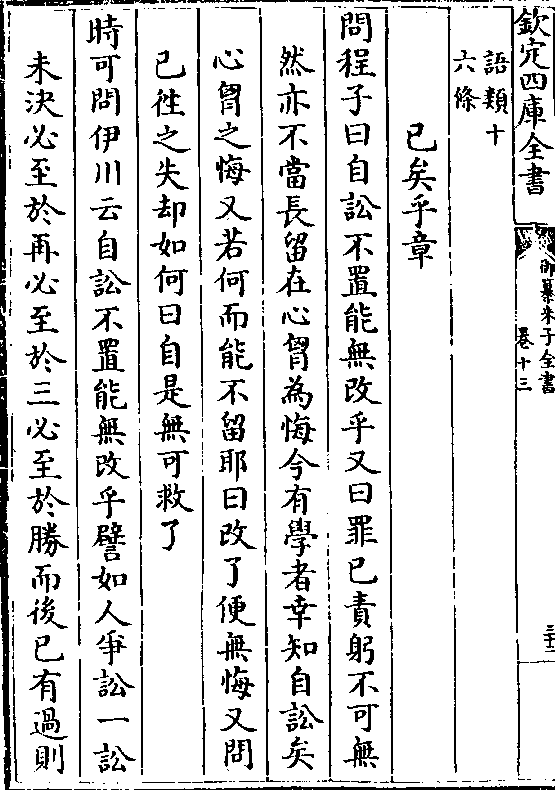 欽定四庫全書
御纂朱子全書
卷十三
三十三
語類十
六條
已矣乎章
問程子曰自訟不置能無改乎又曰罪已責躬不可無
然亦不當長留在心胷為悔今有學者幸知自訟矣
心胷之悔又若何而能不留耶曰改了便無悔又問
已徃之失却如何曰自是無可救了
時可問伊川云自訟不置能無改乎譬如人爭訟一訟
未決必至於再必至於三必至於勝而後已有過則